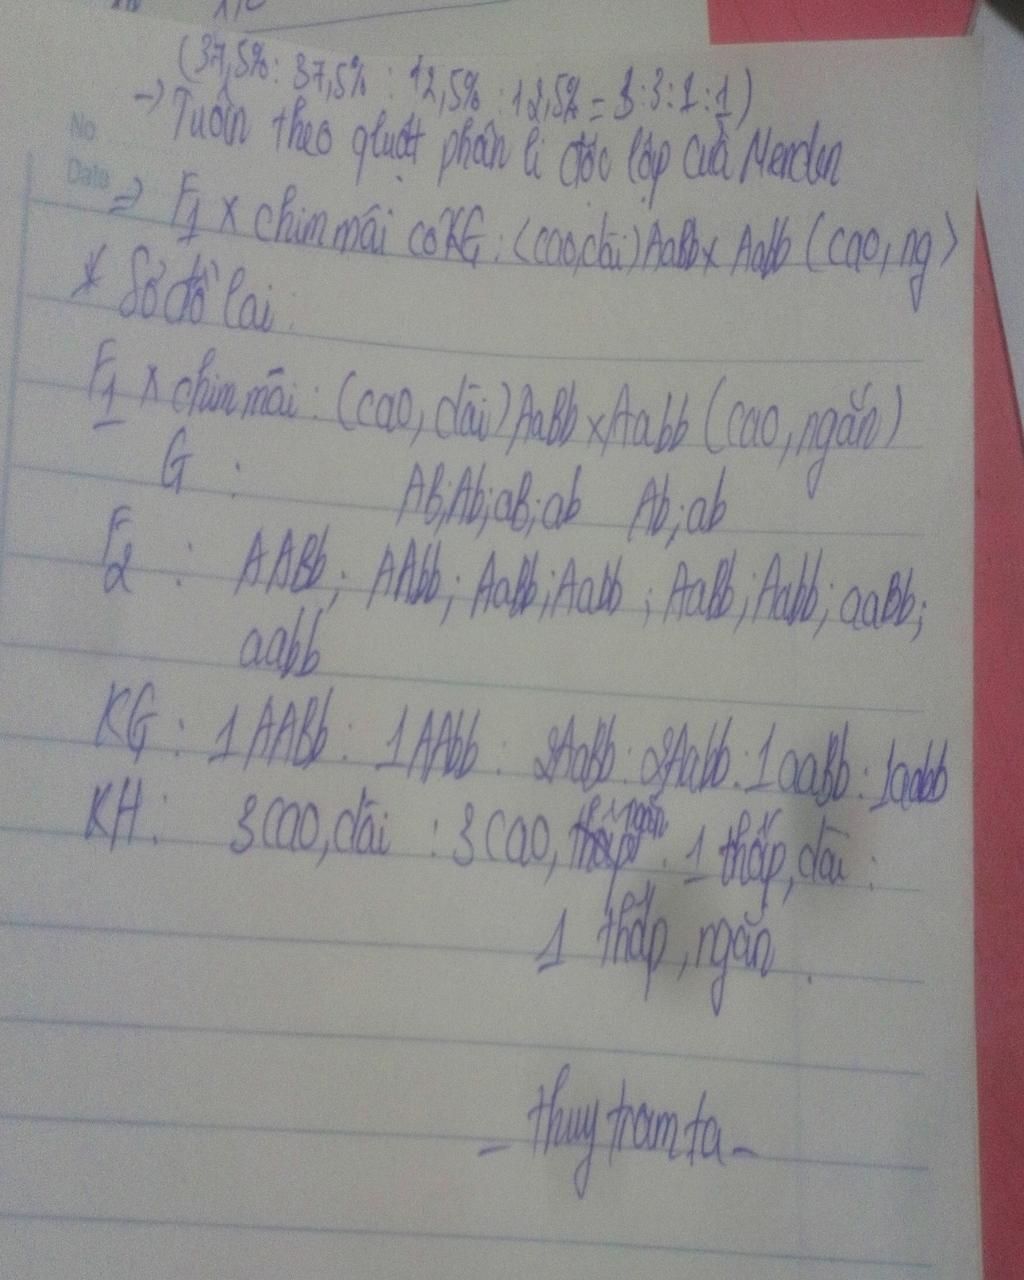 (37,5% : 37,5% : 12,5% : 12,5% = 3:3:1:1)
No
→ Tuân theo qluật phân li độc lập của Menđen
Date
=> F1 x chim mái có KG : (cao,dài) AaBb x Aabb (cao, ng)
* Sơ đồ lai :
F1 x chim mái : (cao, dài) AaBb x Aabb (cao, ngắn)
G : AB;Ab;aB;ab Ab;ab
F2 : AABb; AAbb; AaBb;Aabb ; AaBb;Aabb; aaBb;
aabb
KG : 1AABb : 1AAbb : 2AaBb : 2Aabb : 1aaBb : 1aabb
KH : 3 cao, dài : 3 cao, ngắn : 1 thấp, dài :
1 thấp, ngắn .
- thuytramta -